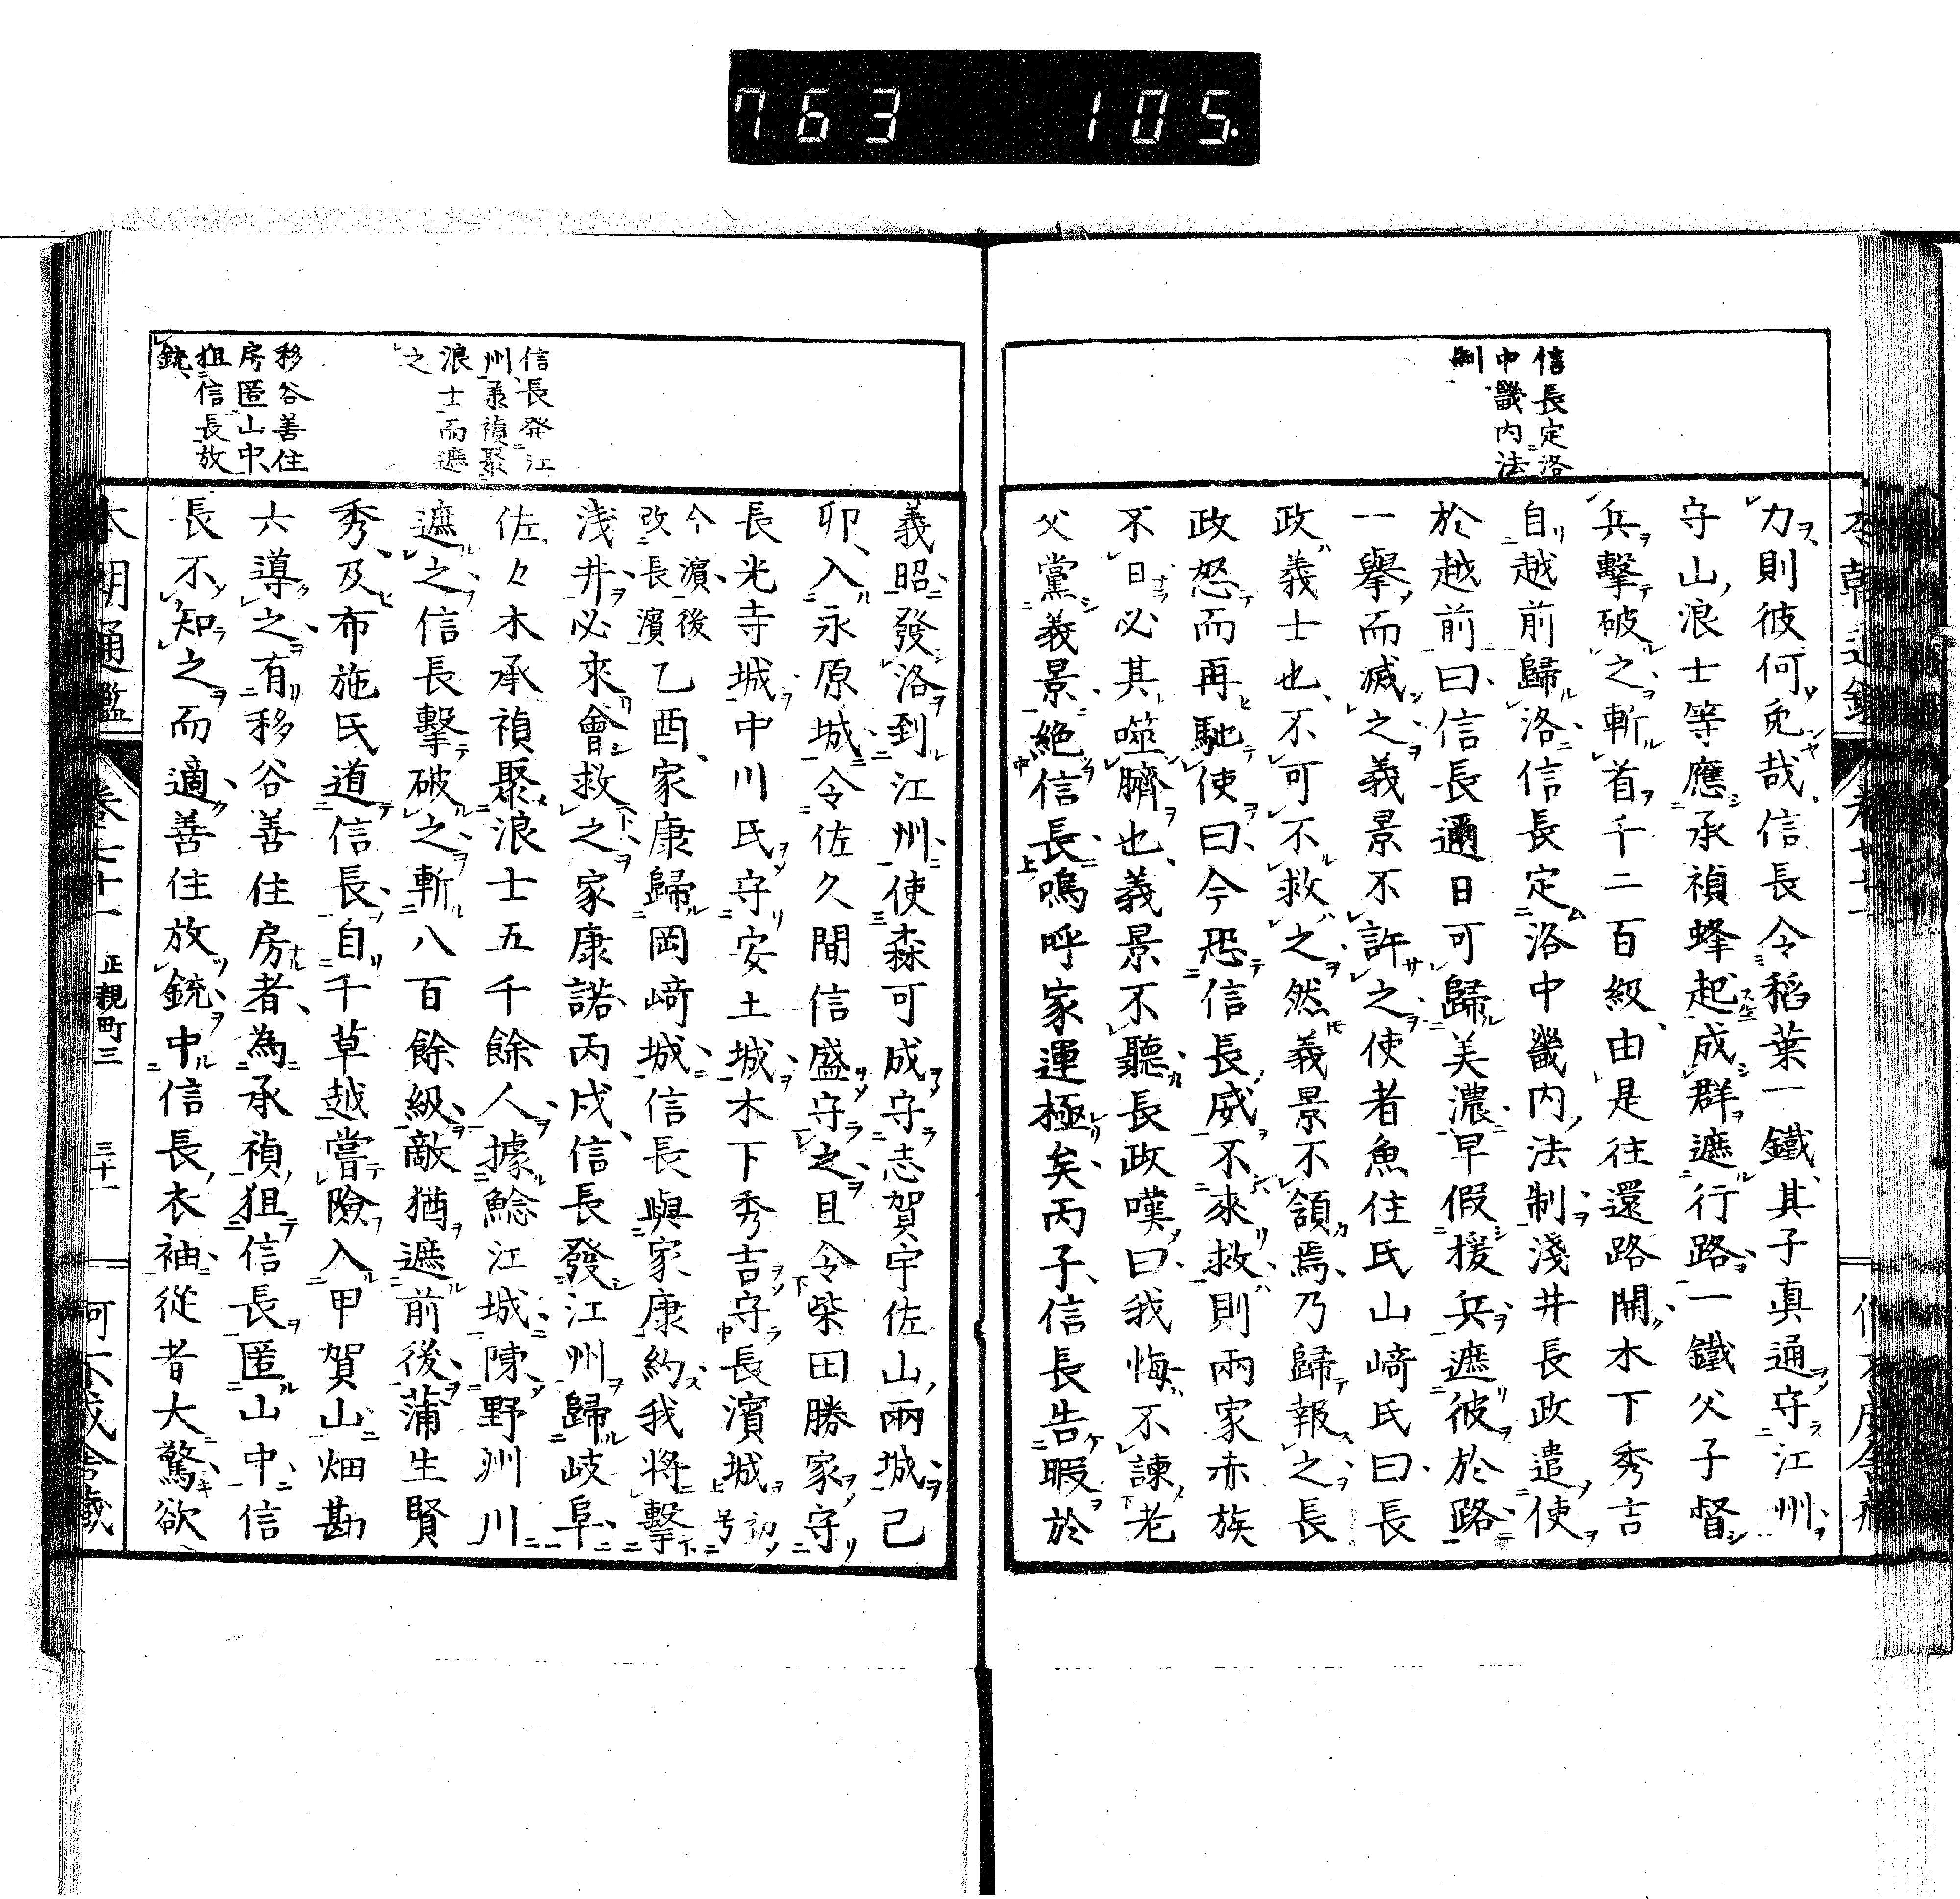 763 105.
信長定洛
中畿内法
制
力則彼何免哉信長令稻葉一鐵其子眞通守江州
守山浪士等應承禎蜂起成群遮行路一鐵父子督
兵擊破之斬首千二百級由是往還路開木下秀吉
自越前歸洛信長定洛中畿内法制淺井長政遣使
於越前曰信長邇日可歸美濃早假援兵遮彼於路
一擧而滅之義景不許之使者魚住氏山﨑氏曰長
政義士也不可不救之然義景不頷焉乃歸報之長
政怒而再馳使曰今恐信長威不來救則兩家赤族
不日必其噬臍也義景不聽長政嘆曰我悔不諫老
父黨義景絶信長嗚呼家運極矣丙子信長告暇於
信長發江
州承禎聚
浪士而遮
之
移谷善住
房匿山中
狙信長放
銃
義昭發洛到江州使森可成守志賀宇佐山兩城己
卯入永原城令佐久間信盛守之且令柴田勝家守
長光寺城中川氏守安土城木下秀吉守長濱城初号
今濱後
改長濱乙酉家康歸岡﨑城信長與家康約我將擊
浅井必來會救之家康諾丙戌信長發江州歸岐阜
佐々木承禎聚浪士五千餘人據鯰江城陳野州川
遮之信長擊破之斬八百餘級敵猶遮前後蒲生賢
秀及布施氏道信長自千草越嘗險入甲賀山畑勘
六導之有移谷善住房者為承禎狙信長匿山中信
長不知之而適善住放銃中信長衣袖從者大驚欲
本朝通鑑 卷七十一 正親町三 三十一